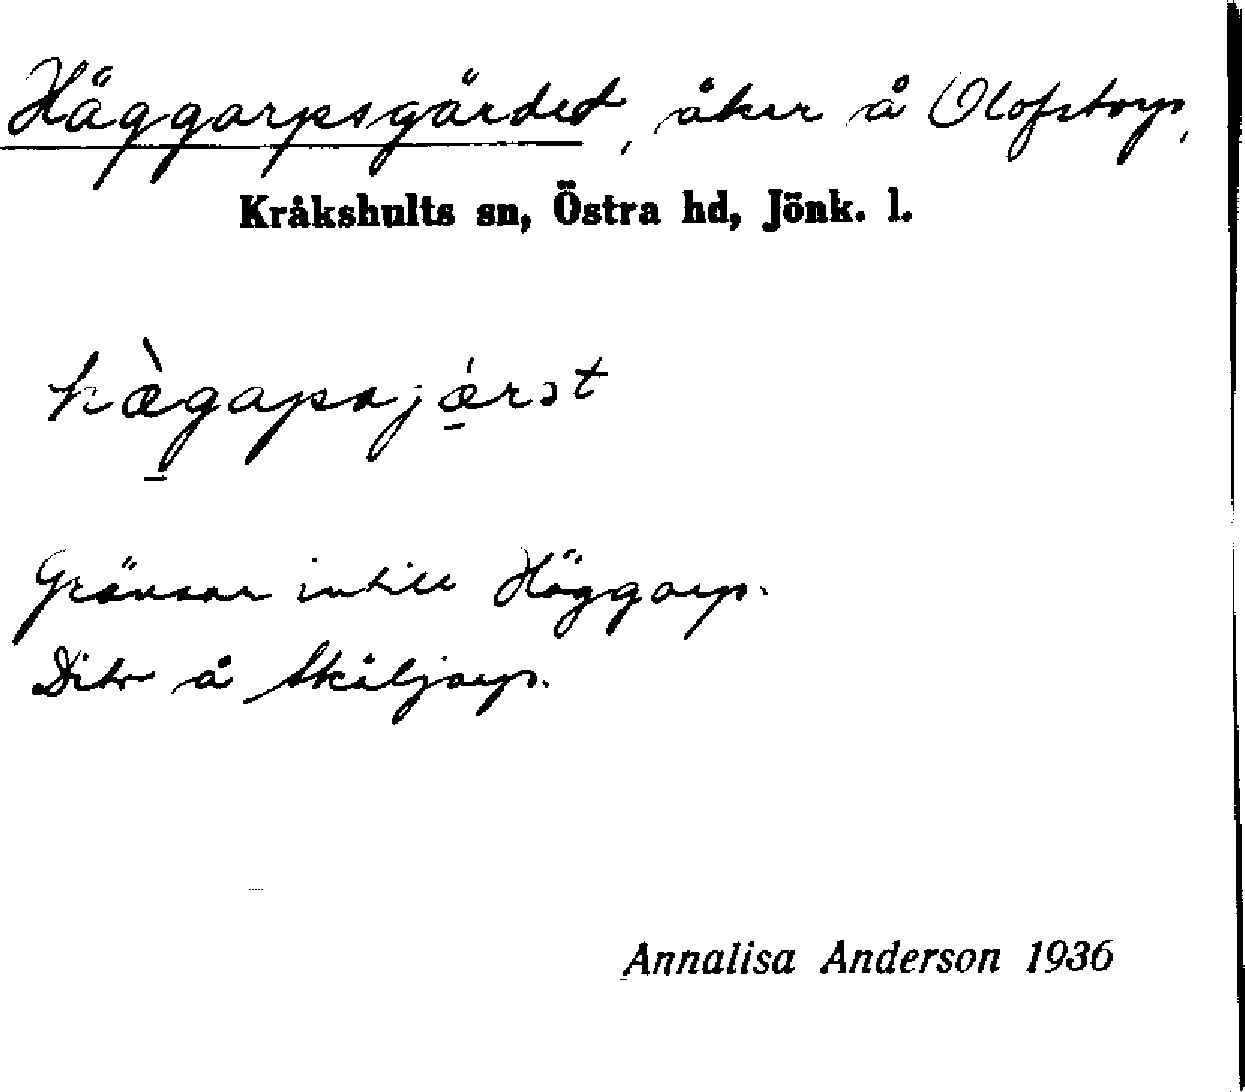 Häggarpsgärdet, åker å Olofstorp,
Kråkshults sn, Östra hd, Jönk. l.
hæ̀gapsjǽrət
Gränsar intill Häggarp.
Dito å Skäljarp.
Annalisa Anderson 1936